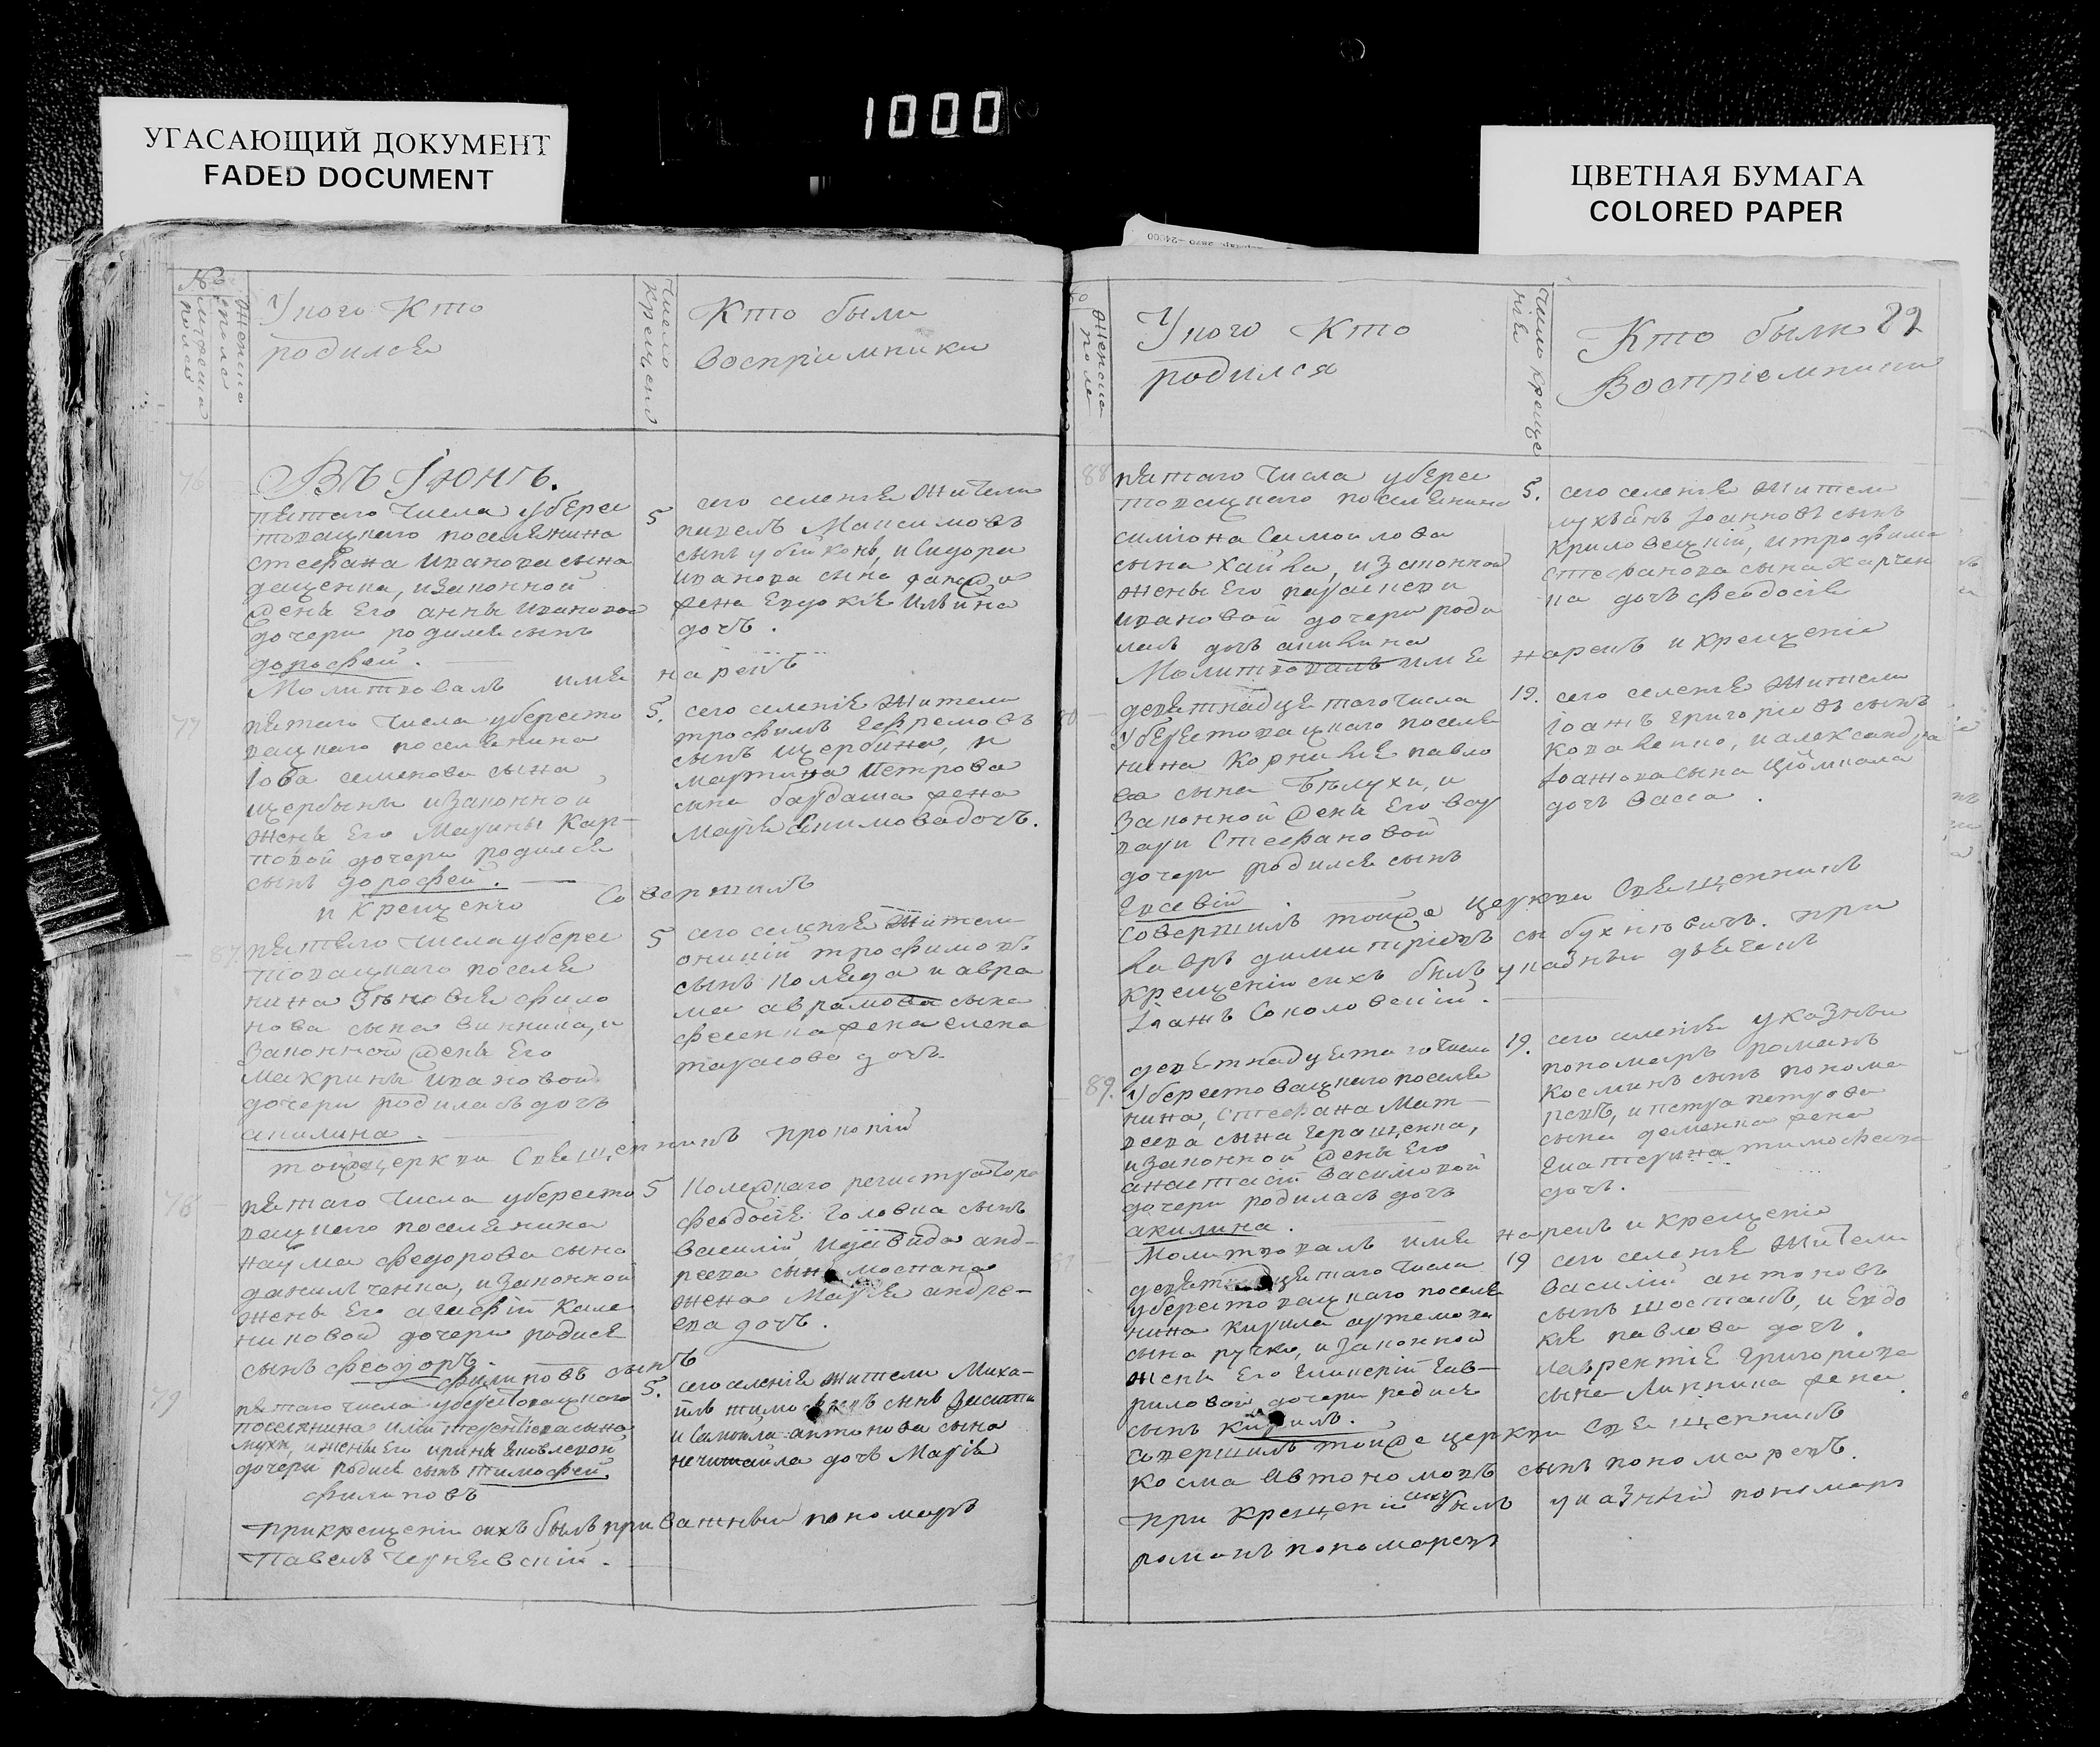 1000
УГАСАЮЩИЙ ДОКУМЕНТ
FADED DOCUMENT
ЦВЕТНАЯ БУМАГА
COLORED PAPER
№
мужеска
полса
Женска
пола
У кого Кто
родился
Число
крещения
Кто были
Восприемники
76
Въ Іюнѣ.
пятаго числа уберес
товацкаго поселянина
стефана иванова сына
дащенка, изаконной
жены Его анны ивановой
дочери родился сынъ
дорофей.
5
сего селенія жители
павелъ Максимовъ
сынъ убійконь, и Сидора
иванова сына
жена Евдокія Ильина
дочь.
Молитвовалъ имя нарекъ
77
пятаго числа убересто
вацкаго поселянина
Іова семенова сына
щербины изаконной
жены Его Марины Кар-
повой дочери родился
сынъ дорофей.
5.
сего селенія жители
трофимъ Ефремовъ
сынъ щербина, и
мартина Петрова
сына бардаша жена
марія Якимова дочь.
и Крещеніе Совершилъ
87.
пятаго числа уберес
товацкаго поселя
нина Зѣновія фило
нова сына винника, и
Законной жены Его
Макрины ивановой
дочери родилась дочь
акилина.
5
сего селенія жители
онисій трофимовъ
сынъ коляда и авра
ма аврамова сына
фесенка жена елена
тарасова дочь
тойже церкви Священникъ прокопій
78
пятаго числа убересто
вацкаго поселянина
наума федорова сына
данильченка, изаконной
жены Его агафіи Кале
никовой дочери родися
сынъ феодоръ.
5
Колежкаго регистратора
феодосія Головка сынъ
Василій идавида анд-
реева сына мостана
жена Марія андре-
ева дочь.
филиповъ сынъ
79
пятаго числа уберстовацкаго
поселянина иліи терентіева сына
мухи, и жены Его ирины яковлевой
дочери родися сынъ тимофей.
5.
сего селенія жители Миха-
илъ тимофеевъ сынъ
и Самойла антонова сына
нечитайла дочь Марія
филиповъ
прикрещеніи сихъ былъ приважный пономарь
Павелъ Чернявскій.
Женска
пола
У кого Кто
родился
Число креще
нія
Кто были
Воспріемники
88
пятаго числа уберес
товацкаго поселянина
симіона Самойлова
сына хайка, изаконной
жены Его параскеви
ивановой дочери роди
лась дочь акилина
5.
сего селенія жители
лукіянъ Іоанновъ сынъ
криловецкій, итрофима
стефанова сына харчен
ка дочь феодосія
Молитвовалъ имя нарекъ и крещеніе
80
девятнадцятаго числа
Уберестовацкаго поселя
нина Корнилія павло
ва сына Бѣлухи, и
Законной жены Его вар
вари Стефановой
дочери родился сынъ
Евсевій
19.
сего селенія жители
Іоанъ григоріевъ сынъ
коваленко, и александра
Іоанова сына
дочь васса.
Совершилъ тойже церкви Священникъ
лавръ димитріевъ сы бухнѣвичъ. при
крещеніи сихъ былъ указный дьячекъ
Іоанъ Соколовскій.
89.
девятнадцятаго числа
Уберестовацкаго поселя
нина, Стефана Мат-
веева сына геращенка,
изаконной жены Его
анастасіи василовой
дочери родилась дочь
акилина.
19.
сего селенія указный
пономарь романъ
космынъ сынъ понома
ревъ, и петра петрова
сына деменка жена
Екатерина тимофеева
дочь.
Молитвовалъ имя нарекъ и крещеніе
девятнадцятаго числа
уберестовацкаго поселя
нина Кирила артемова
сына ручки, и законной
жены Его Гликеріи гав-
риловой дочери родися
сынъ Кирилъ.
19
сего селенія жители
Василій антоновъ
сынъ шостакъ, и Евдо
кія павлова дочь.
лаврентія григорьева
сына Линника жена
Совершилъ тойже церкви Священникъ
косма Автономовъ сынъ пономаревъ.
при крещеніи сихъ былъ указный пономарь
романъ пономаревъ